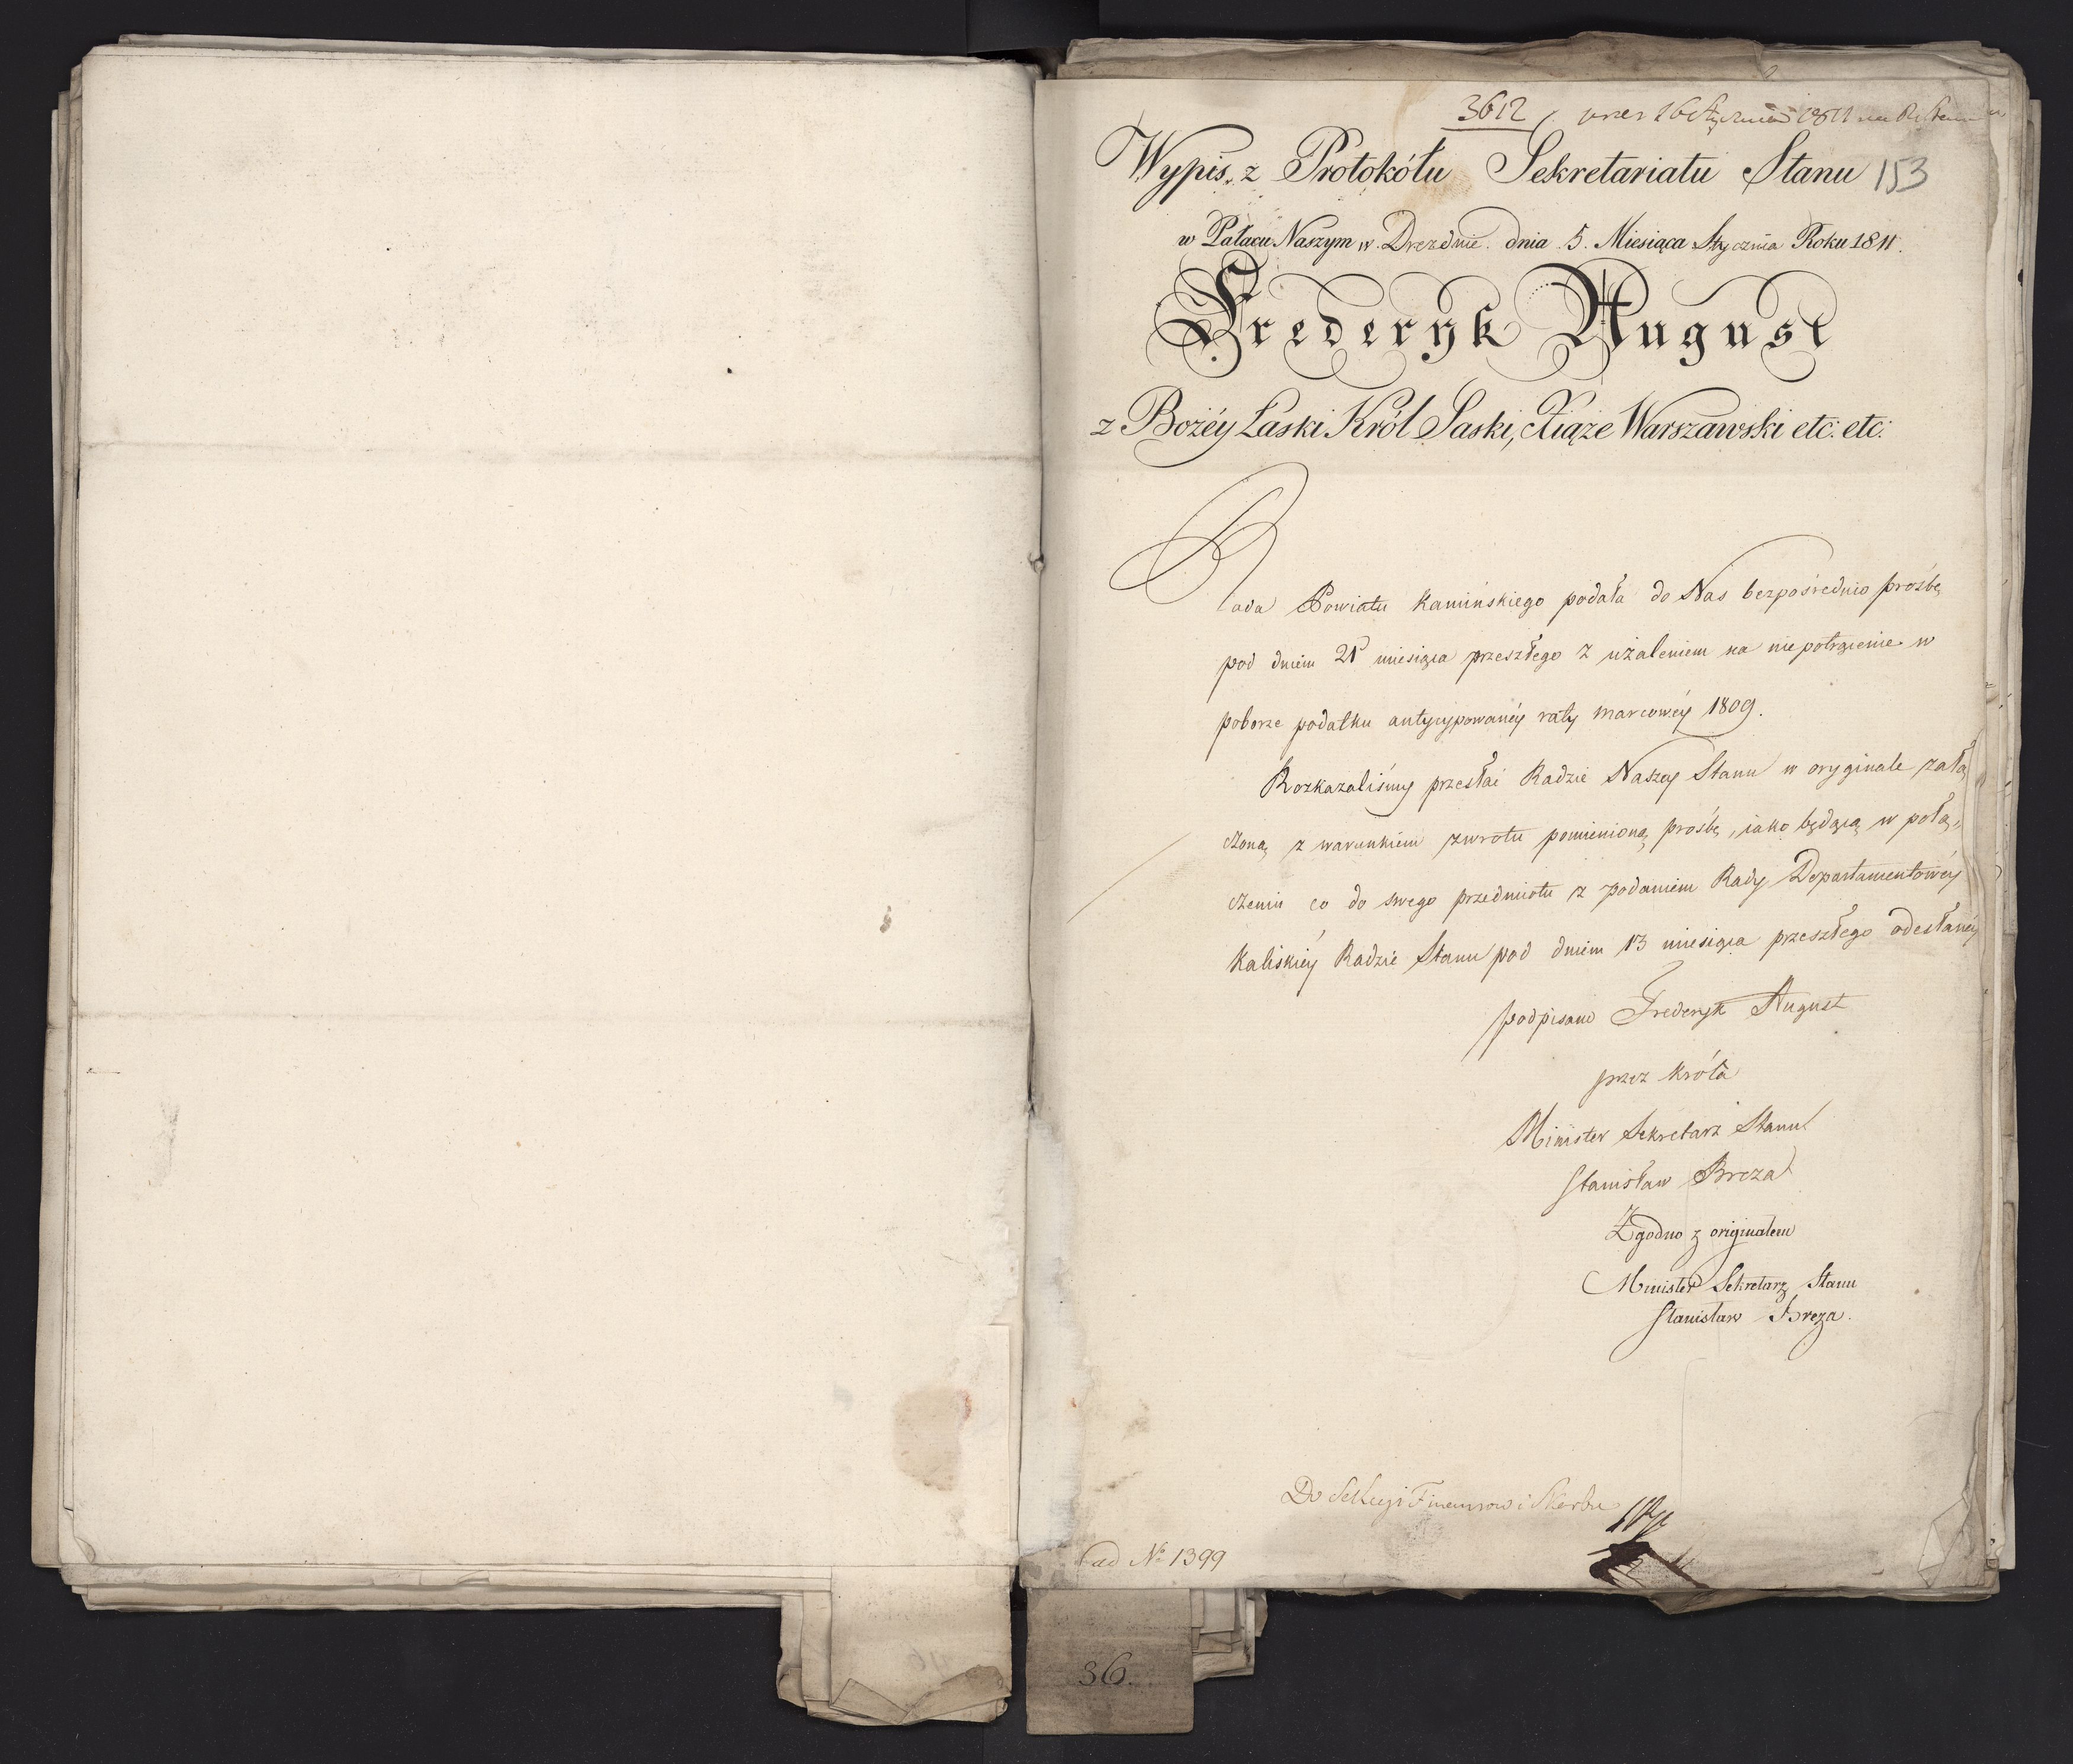 3612 / prez 26 Stycznia 1811 na
Wypis z Protokółu Sekretariatu Stanu 153
w Pałacu Naszym w Dreznie dnia 5. Miesiąca Stycznia Roku 1811.
Fryderyk August
z Bożéy Łaski Król Saski, Xiąże Warszawski etc: etc:
Rada Powiatu Kamińskiego podała do Nas bezpośrednio prośbę
pod dniem 21 miesiąca przeszłego z użaleniem na niepotrącenie w
poborze podatku antycypowanéy raty marcowéy 1809.
Rozkazaliśmy przesłać Radzie Naszey Stanu w oryginale załą
czoną z warunkiem zwrotu pomienioną prośbę, iako będącą w połą„
czeniu co do swego przedmiotu z podaniem Rady Departamentowéy
Kaliskiéy Radzie Stanu pod dniem 13 miesiąca przeszłego odesłanéy
podpisano Frederyk August
przez Króla
Minister Sekretarz Stanu
Stanisław Breza
Zgodno z originałem
Minister Sekretarz Stanu
Stanisław Breza.
Do Sekcyi Finansow i Skarbu
ad No 1399
36.